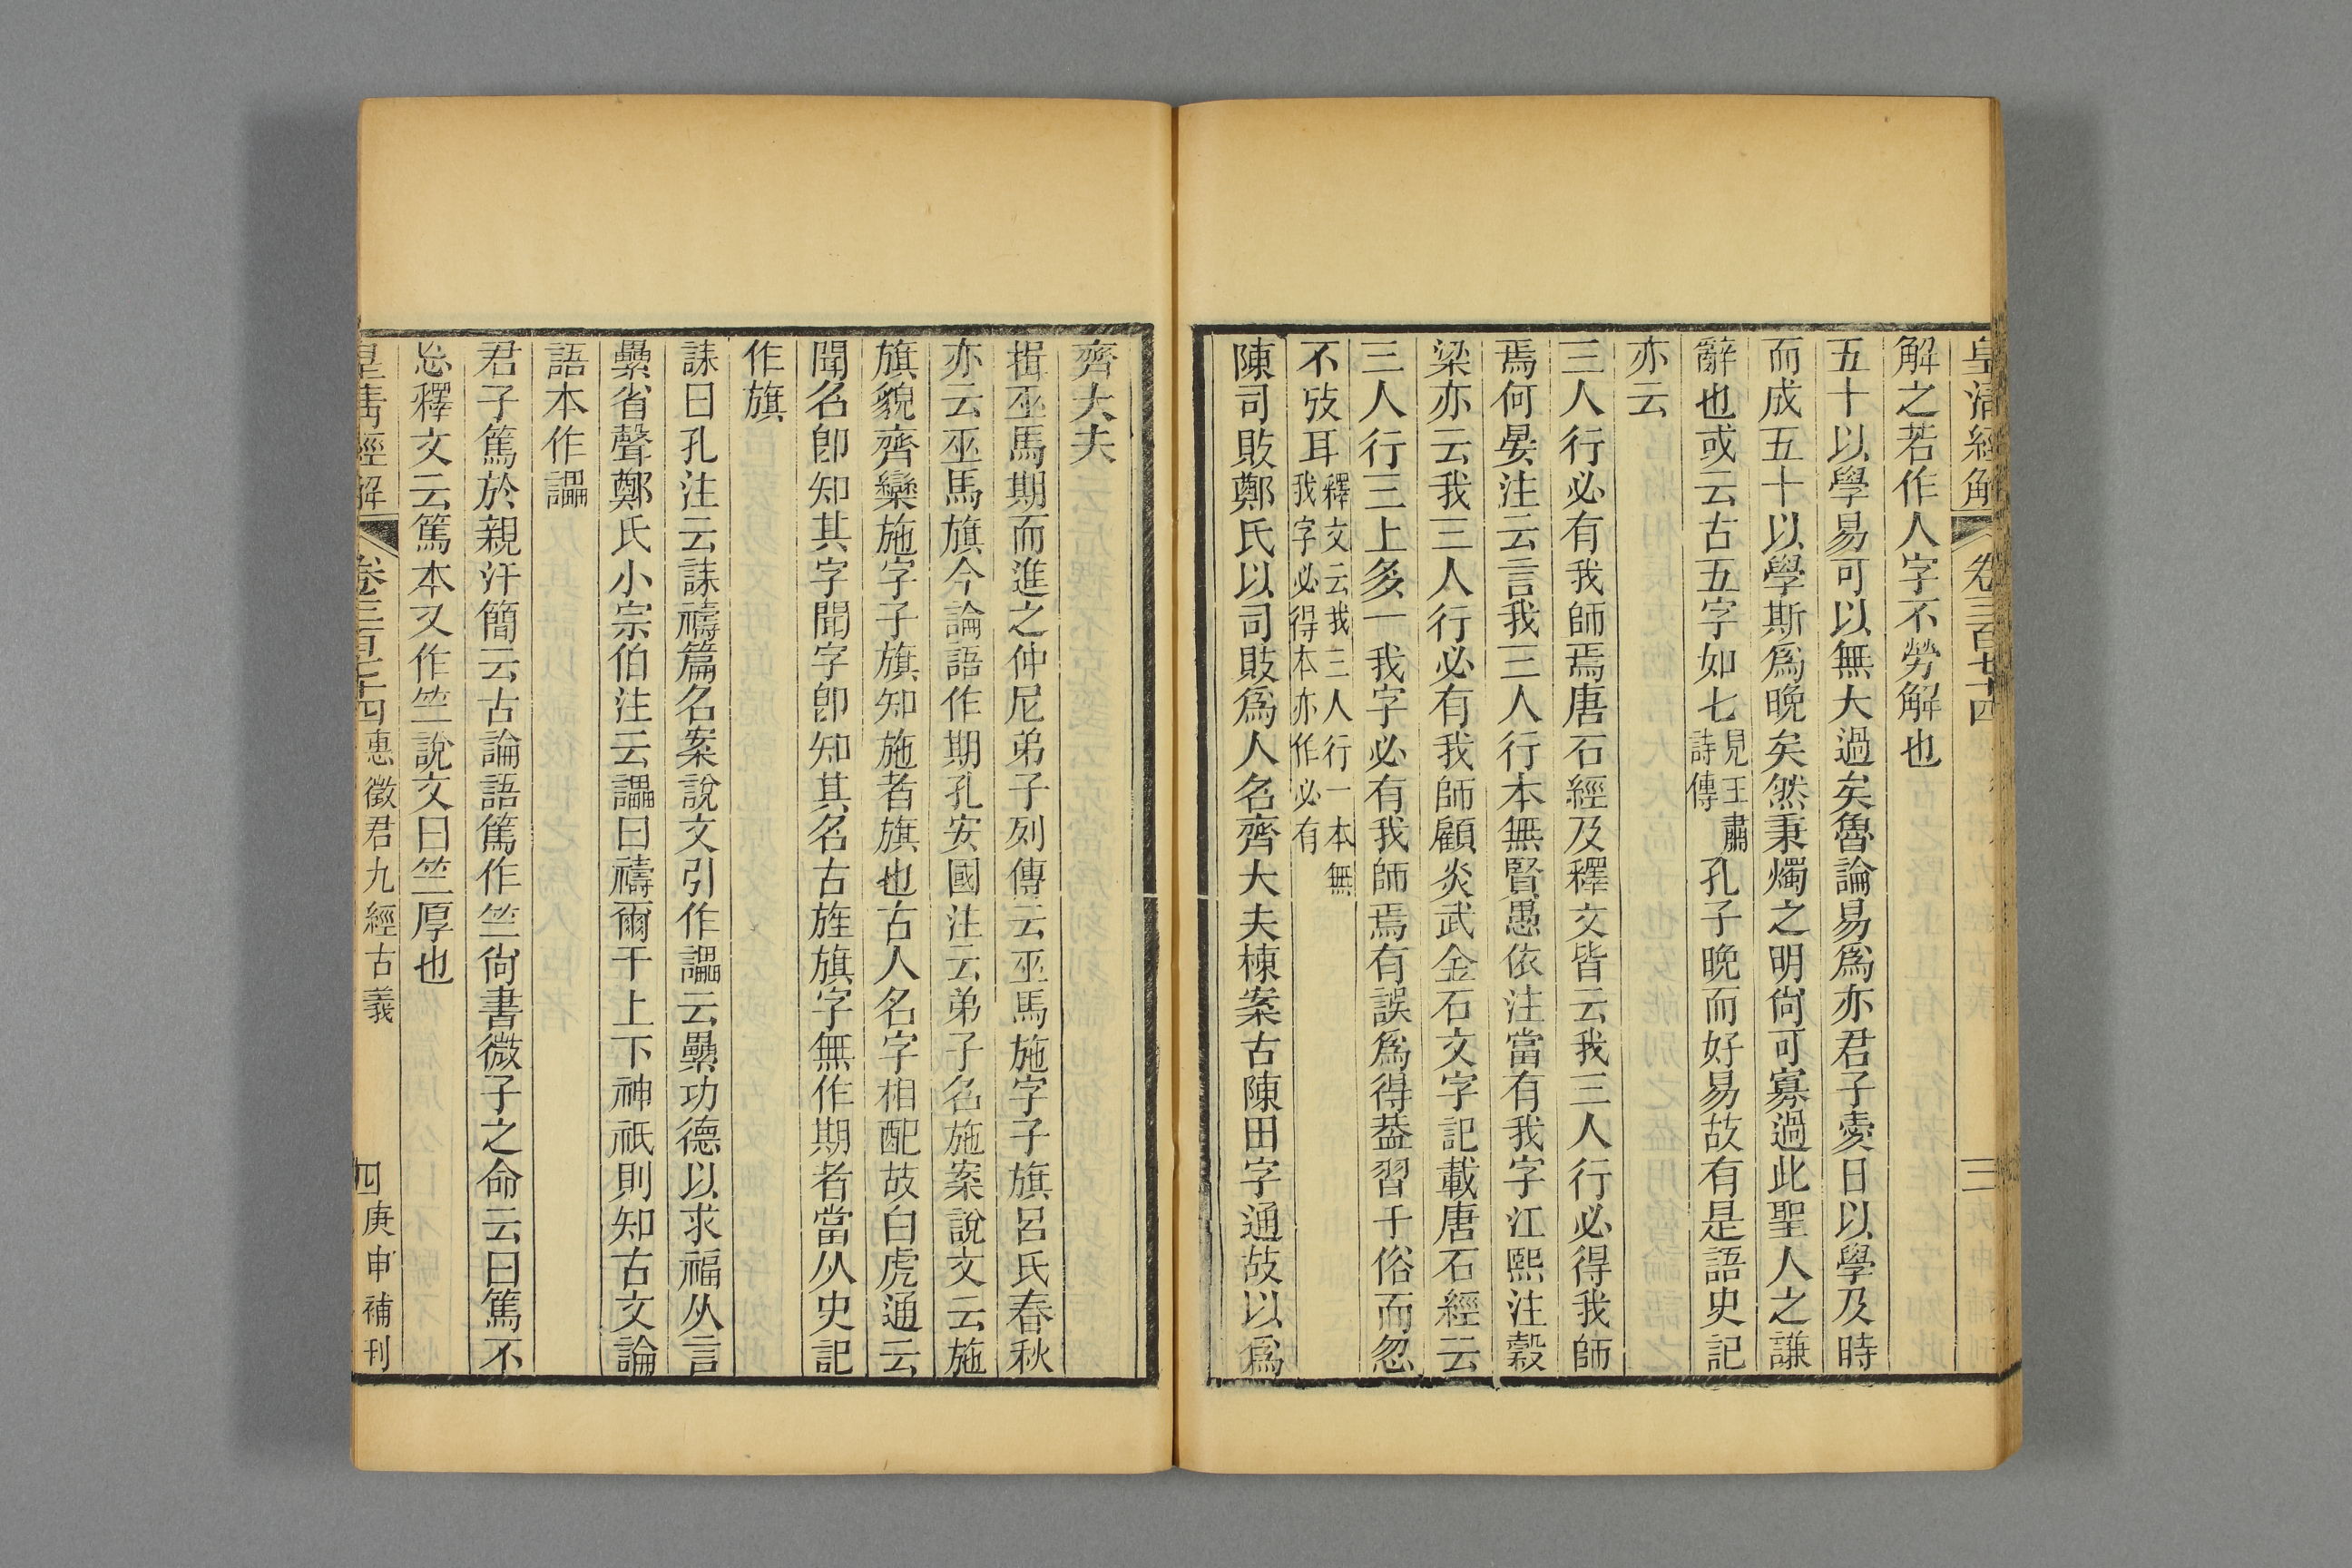 皇清經解 卷三百七十四 三
解之若作人字不勞解也
五十以學易可以無大過矣魯論易爲亦君子愛日以學及時
而成五十以學斯爲晚矣然秉燭之明尙可寡過此聖人之謙
辭也或云古五字如七見王肅詩傳孔子晚而好易故有是語史記
亦云
三人行必有我師焉唐石經及釋文皆云我三人行必得我師
焉何晏注云言我三人行本無賢愚依注當有我字江熙注穀
梁亦云我三人行必有我師顧炎武金石文字記載唐石經云
三人行三上多一我字必有我師焉有誤爲得葢習于俗而忽
不攷耳釋文云我三人行一本無我字必得本亦作必有
陳司敗鄭氏以司敗爲人名齊大夫棟案古陳田字通故以爲
齊大夫
揖巫馬期而進之仲尼弟子列傳云巫馬施字子旗呂氏春秋
亦云巫馬旗今論語作期孔安國注云弟子名施案說文云施
旗貌齊欒施字子旗知施者旗也古人名字相配故白虎通云
聞名卽知其字聞字卽知其名古旌旗字無作期者當从史記
作旗
誄曰孔注云誄禱篇名案說文引作讄云纍功德以求福从言
纍省聲鄭氏小宗伯注云讄曰禱爾于上下神祇則知古文論
語本作讄
君子篤於親汗簡云古論語篤作竺尙書微子之命云曰篤不
忘釋文云篤本又作竺說文曰竺厚也
皇清經解 卷三百七十四 惠徵君九經古義 四 庚申補刊